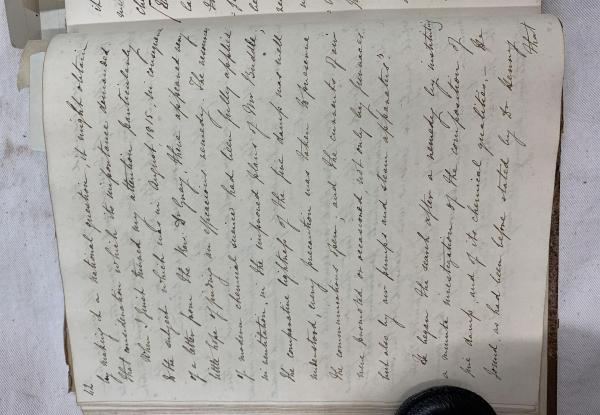 12
by making it a national question, it might obtain
that consideration which its importance demanded.
When I first turned my attention particularly
to the subject which was in August 1815, in consequence
of a letter from the Revd Dr Gray, there appeared very
little hope of finding an efficacious remedy. The resources
of modern chemical science had been fully applied
in ventilation, in the improved plans of Mr Buddle;
the comparative lightness of the fire damp was well
understood, every precaution was taken to preserve
the communications open; and the currents of air
were promoted or occasioned not only by furnaces
but also by air pumps and steam apparatus.
He began the search after a remedy by instituting
a minute investigation of the composition of
fire damp and of its chemical qualities. – He
found, as had been before stated by Dr Henry
that